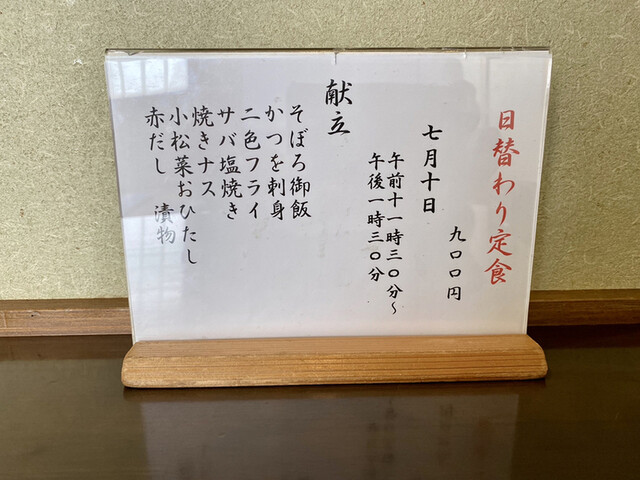 日替わり定食
九〇〇円
七月十日
午前十一時三〇分～
午後一時三〇分
献立
そぼろ御飯
かつを刺身
二色フライ
サバ塩焼き
焼きナス
小松菜おひたし
赤だし　漬物